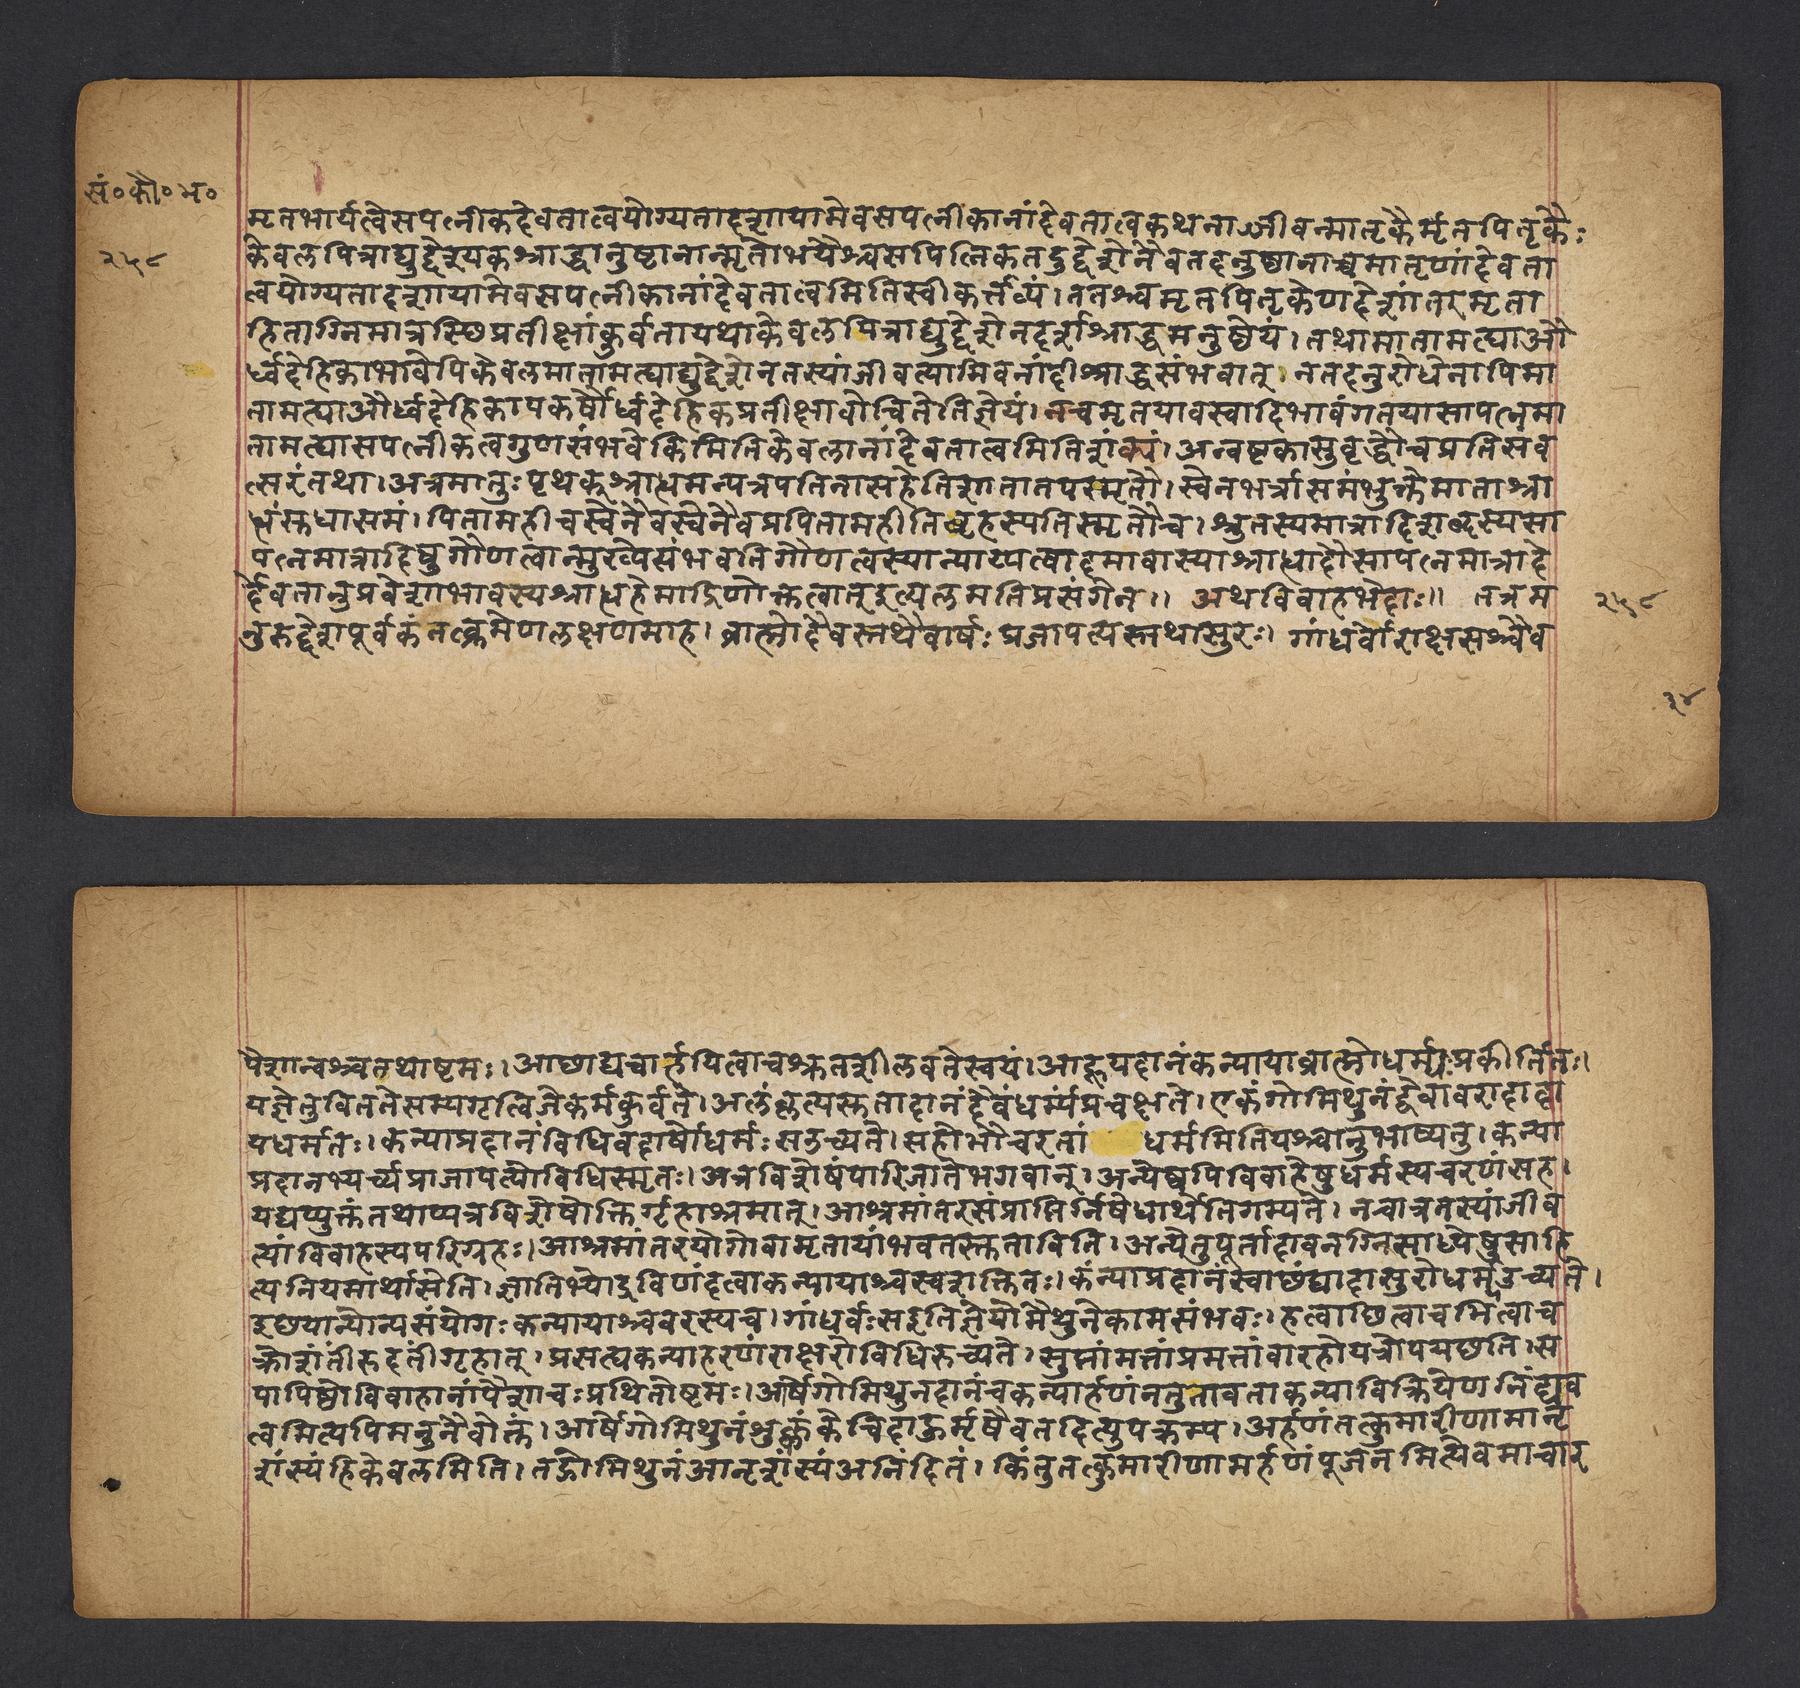 सं॰कौ॰भ॰
२५८
मृतभार्यत्वेसपत्नीकदेवतात्वयोग्यतादशायामेवसपत्नीकानांदेवतात्वकथनाज्जीवन्मातृकैर्मृतपितृकैः
केवलपित्राद्युद्देश्यकश्राद्धानुष्टानान्मृतोभयैश्चसपत्निकतदुद्देशेनैवतदनुष्ठानाच्चमातृणांदेवता
त्वयोग्यतादशायामेवसपत्नीकानांदेवतात्वमितिस्वीकर्त्तव्यं।ततश्चमृतपितृकेणदेशांतरमृता
हिताग्निमात्रस्छिप्रतीक्षांकुर्वतायथाकेवलपित्राद्युद्देशेनदर्शश्राद्धमनुष्ठेयं।तथामातामत्याऔ
र्ध्वदेहिकाभावेपिकेवलमातामत्याद्युद्देशेनतस्यांजीवत्यामिवनांदीश्राद्धसंभवात्।नतदनुरोधेनापिमा
तामत्याऔर्ध्वदेहिकापकर्षौर्ध्वदेहिकप्रतीक्षावोचितेतिज्ञेयं।नचमृतयावस्वादिभावंगतयासापत्नमा
तामत्यासपत्नीकत्वगुणसंभवेकिमितिकेवलानांदेवतात्वमितिशंक्यं।अन्वष्टकासुवृद्धौचप्रतिसंव
त्सरंतथा।अत्रमातुःपृथक्श्राद्धमन्यत्रपतिनासहेतिशातातपस्मृतौ।स्वेनभर्त्रासमंभुक्तेमाताश्रा
द्धंस्वधासमं।पितामहीचस्वेनैवस्वेनैवप्रपितामहीतिबृहस्पतिस्मृतौच।श्रुतस्यमात्रादिशब्दस्यसा
पत्नमात्रादिषुगौणत्वान्मुख्येसंभवतिगौणत्वस्यान्याय्यत्वादमावास्याश्राद्धादौसापत्नमात्रादे
र्देवतानुप्रवेशाभावस्यश्राद्धहेमाद्रिणोक्तत्वात्इत्यलमतिप्रसंगेन॥ अथविवाहभेदाः॥ तत्रम
२५८
नुरुद्देशपूर्वकंतत्क्रमेणलक्षणमाह।ब्राह्मोदैवस्तथैवार्षःप्रजापत्यस्तथासुरः।गांधर्वोराक्षसश्चैव
३४
पैशाचश्चतथाष्टमः।आछाद्यचार्हयित्वाचश्रुतशीलवतेस्वयं।आहूयदानंकन्यायाब्राह्मोधर्म्मःप्रकीर्तितः।
यज्ञेतुविततेसम्यगृत्विजेकर्मकुर्वते।अलंकृत्यसुतादानंदैवंधर्म्यंप्रचक्षते।एकंगोमिथुनंद्वेवावरादादा
यधर्मतः।कन्याप्रदानंविधिवदार्षोधर्मःसउच्यते।सहोभौचरतां धर्ममितियश्चानुभाष्यतु।कन्या
प्रदानभ्यर्च्यप्राजापत्योविधिस्मृतः।अत्रविशेषंपारिजातेभगवान्।अन्येष्वपिविवाहेषुधर्मस्यचरणंसह।
यद्यप्युक्तंतथाप्यत्रविशेषोक्तिर्गृहाश्रमात्।आश्रमांतरसंप्राप्तिर्निषेधार्थेतिगम्यते।नचात्रतस्यांजीव
त्यांविवाहस्यपरिग्रहः।आश्रमांतरयोगोवामृतायांभवतस्ततावितितु।अन्येतुपूर्तादावनग्निसाध्येषुसाहि
त्यनियमार्थासेति।ज्ञातिभ्योद्रविणंदत्वाकन्यायाश्चस्वशक्तितः।कन्याप्रदानंस्वाछंद्यादासुरोधर्मउच्यते।
इछयान्योन्यसंयोगःकन्यायाश्चवरस्यच।गांधर्वःसइतिज्ञेयोमैथुनेकामसंभवः।हत्वाछित्वाचभित्वाच
क्रोशंतींरुदतींगृहात्।प्रसत्यकन्याहरणंराक्षसोविधिरुच्यते।सुप्तांमत्तांप्रमत्तांवारहोयत्रोपगछति।स
पापिष्ठोविवाहानांपैशाचःप्रथितोष्टमः।आर्षेगोमिथुनदानंचकन्यार्हणंनतुतावताकन्याविक्रियेणनिंद्यव
त्वमित्यपिमनुनैवोक्तं।आर्षेगोमिथुनंशुल्कंकेचिदाहुर्मृषैवतदित्युपक्रम्य।अर्हणंतत्कुमारीणामानृ
शंस्यंहिकेवलमिति।तद्गोमिथुनंआनृशंस्यंअनिंदितं।किंतुतत्कुमारीणामर्हणंपूजनमित्येवमाचार